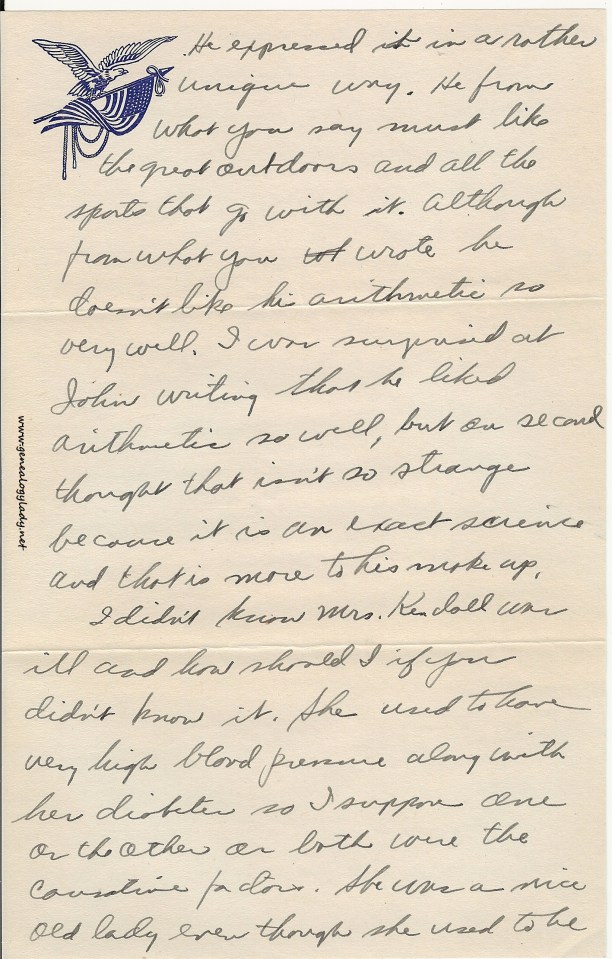 He expressed it in a rather
unique way. He from
what you say must like
the great outdoors and all the
sports that go with it. Although
from what you wrote he
doesn't like his arithmetic so
very well. I was surprised at
John writing that he liked
arithmetic so well, but on second
thought that isn't so strange
because it is an exact science
and that is more to his make up.
I didn't know Mrs. Kendall was
ill and how should I if you
didn't know it. She used to have
very high blood pressure along with
her diabetes so I suppose one
or the other or both were the
causative factors. She was a nice
old lady even though she used to be
www.genealogylady.net